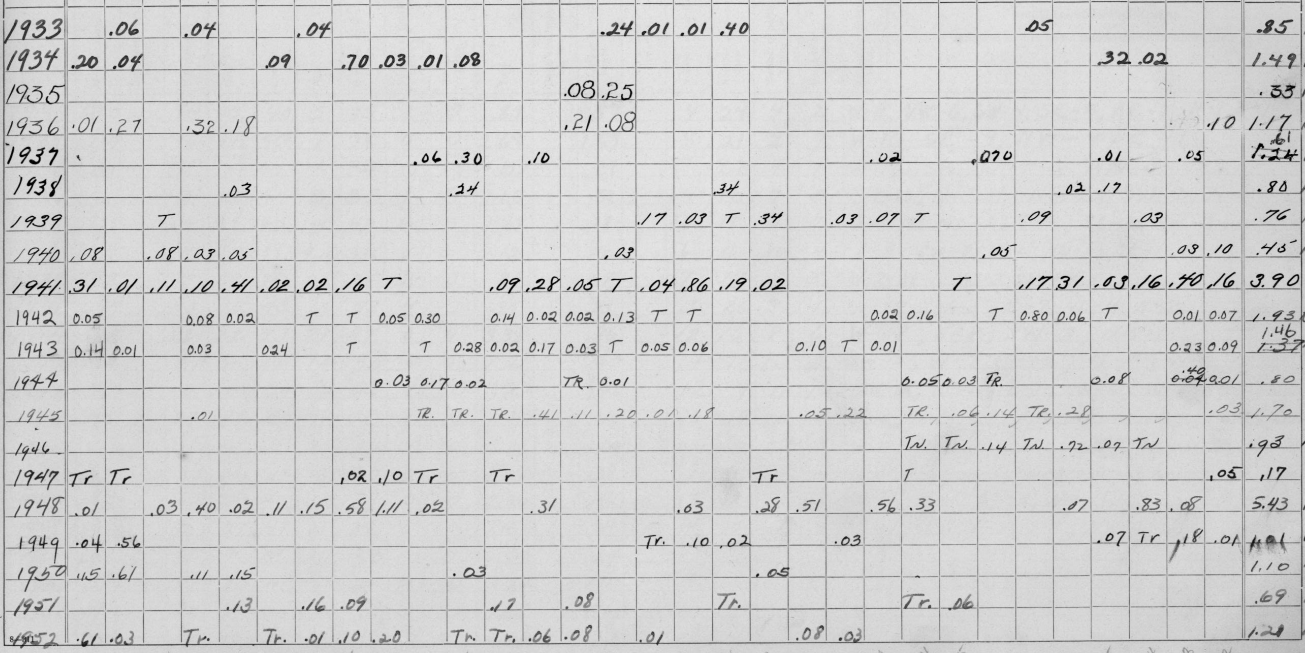 1933 .06 .04 .04 .24 .01 .01 .40 .05 .85
1934 .20 .04 .09 .70 .03 .01 .08 .32 .02 1.49
1935 .08 .25 .33
1936 .01 .27 .32 .18 .21 .08 .10 1.17
.61
1937 .06 .30 .10 .02 .070 .01 .05 1.24
1938 .03 .24 .34 .02 .17 .80
1939 T .17 .03 T .34 .03 .07 T .09 .03 .76
1940 .08 .08 .03 .05 .03 .05 .03 .10 .45
1941 .31 .01 .11 .10 .41 .02 .02 .16 T .09 .28 .05 T .04 .86 .19 .02 T .17 31 .03 .16 .40 .16 3.90
1942 0.05 0.08 0.02 T T 0.05 0.30 0.14 0.02 0.02 0.13 T T 0.02 0.16 T 0.80 0.06 T 0.01 0.07 1.93
1.46
1943 0.14 0.01 0.03 024 T T 0.28 0.02 0.17 0.03 T 0.05 0.06 0.10 T 0.01 0.23 0.09 1.37
.40
1944 0.03 0.17 0.02 TR. 0.01 0.05 0.03 TR. 0.08 0.04 0.01 .80
1945 .01 TR. TR. TR. .41 .11 .20 .01 .18 .05 .22 TR. .06 .14 TR. .28 .03 1.70
1946 TN. TN. .14 TN. .72 .07 TN .93
1947 Tr Tr .02 .10 Tr Tr Tr T .05 .17
1948 .01 .03 .40 .02 .11 .15 .58 1.11 .02 .31 .03 .28 .51 .56 .33 .07 .83 .08 5.43
1949 .04 .56 Tr. .10 .02 .03 .07 Tr .18 .01 1.01
1950 .15 .61 .11 .15 .03 .05 1.10
1951 .13 .16 .09 .17 .08 Tr. Tr. .06 .69
1952 .61 .03 Tr. Tr. .01 .10 .20 Tr. Tr. .06 .08 .01 .08 .03 1.21